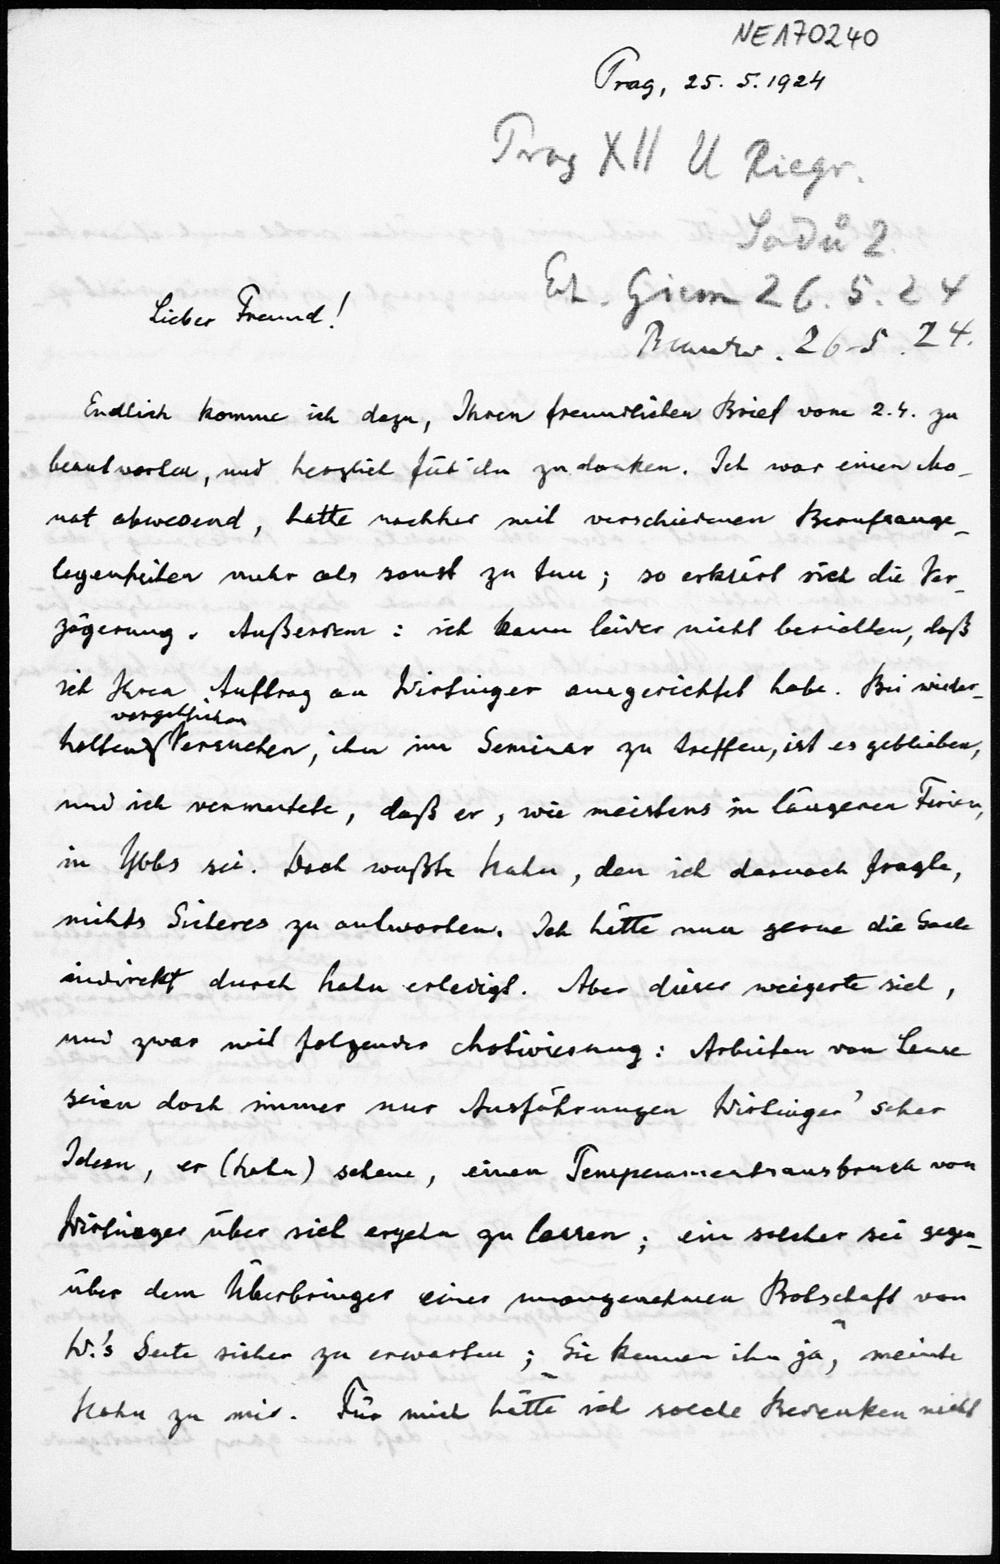 NE170240
Prag, 25. 5. 1924
Prag XII U Riegr.
Sadů 2.
Erh. Gries 26. 5. 24
Beantw. 26. 5. 24.
Lieber Freund!
Endlich komme ich dazu, Ihren freundlichen Brief vom 2.4. zu
beantworten, und herzlich für ihn zu danken. Ich war einen Mo-
nat abwesend, hatte nachher mit verschiedenen Berufsange-
legenheiten mehr als sonst zu tun; so erklärt sich die Ver-
zögerung. Außerdem: ich kann leider nicht berichten, daß
ich Ihren Auftrag an Wirtinger ausgerichtet habe. Bei wieder-
vergeblichen
holten Versuchen, ihn im Seminar zu treffen, ist es geblieben,
und ich vermutete, daß er, wie meistens in längeren Ferien,
in Ybbs sei. Doch wußte Hahn, den ich darnach fragte,
nichts Sicheres zu antworten. Ich hätte nun gerne die Sache
indirekt durch Hahn erledigt. Aber dieser weigerte sich,
und zwar mit folgender Motivierung: Arbeiten von Lense
seien doch immer nur Ausführungen Wirtinger'scher
Ideen, er (Hahn) scheue, einen Temperamentsausbruch von
Wirtinger über sich ergehn zu lassen; ein solcher sei gegen-
über dem Überbringer einer unangenehmen Botschaft von
W.'s Seite sicher zu erwarten; "Sie kennen ihn ja", meinte
Hahn zu mir. Für mich hätte ich solche Bedenken nicht